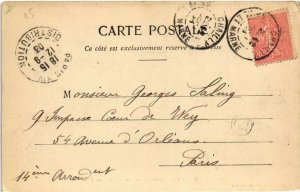 CARTE POSTALE
Ce côté est exclusivement réservé à l'adresse
DISTRIBUTION
18 15
9-9
03
Monsieur Georges
9 Impasse Cœur de Vey
54 avenue d'Orléans
Paris
14ème Arrondt